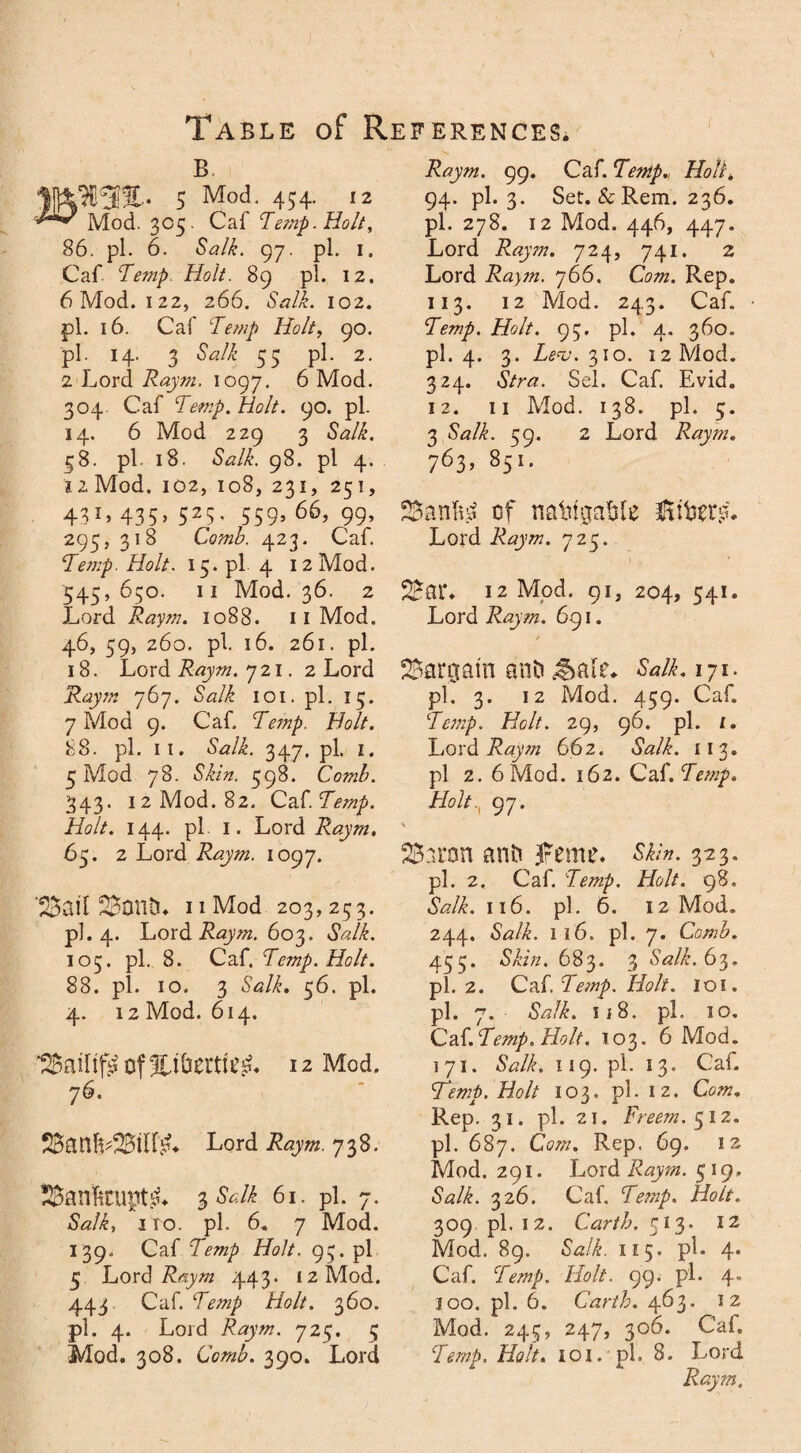 TABLE of REFERENCES.
B.
BAIL. 5 Mod. 454. 12
Mod. 305. Caf Temp. Holt,
86. pl. 6. Salk. 97. pl. 1.
Caf Temp. Holt. 89 pl. 12.
6 Mod. 122, 266. Salk. 102.
pl. 16. Caf Temp Holt, 90.
pl. 14. 3 Salk 55 pl. 2.
2 Lord Raym. 1097. 6 Mod.
304. Caf Temp. Holt. 90. pl.
14. 6 Mod 229 3 Salk.
58. pl. 18. Salk. 98. pl 4.
12 Mod. 102, 108, 231, 251,
431, 435, 525. 559, 66, 99,
295, 318 Comb. 423. Caf.
Temp. Holt. 15. pl. 4 12 Mod.
545, 650. 11 Mod. 36. 2
Lord Raym. 1088. 11 Mod.
46, 59, 260. pl. 16. 261. pl.
18. Lord Raym. 721. 2 Lord
Raym 767. Salk 101. pl. 15.
7 Mod 9. Caf. Temp. Holt.
88. pl. 11. Salk. 347. pl. 1.
5 Mod 78. Skin. 598. Comb.
343. 12 Mod. 82. Caf. Temp.
Holt. 144. pl. 1. Lord Raym.
65. 2 Lord Raym. 1097.
Bail Bond. 11 Mod 203, 253.
pl. 4. Lord Raym. 603. Salk.
105. pl. 8. Caf. Temp. Holt.
88. pl. 10. 3 Salk. 56. pl.
4. 12 Mod. 614.
Bailifs of Liberties. 12 Mod.
76.
Bank-Bills. Lord Raym. 738.
Bankrupts. 3 Salk 61. pl. 7.
Salk, 110. pl. 6. 7 Mod.
139. Caf Temp Holt. 95. pl
5 Lord Raym 443. 12 Mod.
443 Caf. Temp Holt. 360.
pl. 4. Lord Raym. 725. 5
Mod. 308. Comb. 390. Lord
Raym. 99. Caf. Temp. Holt.
94. pl. 3. Set. & Rem. 236.
pl. 278. 12 Mod. 446, 447.
Lord Raym. 724, 741. 2
Lord Raym. 766. Com. Rep.
113. 12 Mod. 243. Caf.
Temp. Holt. 95. pl. 4. 360.
pl. 4. 3. Lev. 310. 12 Mod.
324. Stra. Sel. Caf. Evid.
12. 11 Mod. 138. pl. 5.
3 Salk. 59. 2 Lord Raym.
763, 851.
Banks of navigable Rivers.
Lord Raym. 725.
Bar. 12 Mod. 91, 204, 541.
Lord Raym. 691.
Bargain and Sale. Salk. 171.
pl. 3. 12 Mod. 459. Caf.
Temp. Holt. 29, 96. pl. 1.
Lord Raym 662. Salk. 113.
pl 2. 6 Mod. 162. Caf. Temp.
Holt., 97.
Baron and Feme. Skin. 323.
pl. 2. Caf. Temp. Holt. 98.
Salk. 116. pl. 6. 12 Mod.
244. Salk. 116. pl. 7. Comb.
455. Skin. 683. 3 Salk. 63.
pl. 2. Caf. Temp. Holt. 101.
pl. 7. Salk. 118. pl. 10.
Caf. Temp. Holt. 103. 6 Mod.
171. Salk. 119. pl. 13. Caf.
Temp. Holt 103. pl. 12. Com.
Rep. 31. pl. 21. Freem. 512.
pl. 687. Com. Rep. 69. 12
Mod. 291. Lord Raym. 519.
Salk. 326. Caf. Temp. Holt.
309 pl. 12. Carth. 513. 12
Mod. 89. Salk. 115. pl. 4.
Caf. Temp. Holt. 99. pl. 4.
100. pl. 6. Carth. 463. 12
Mod. 245, 247, 306. Caf.
Temp. Holt. 101. pl. 8. Lord
Raym.